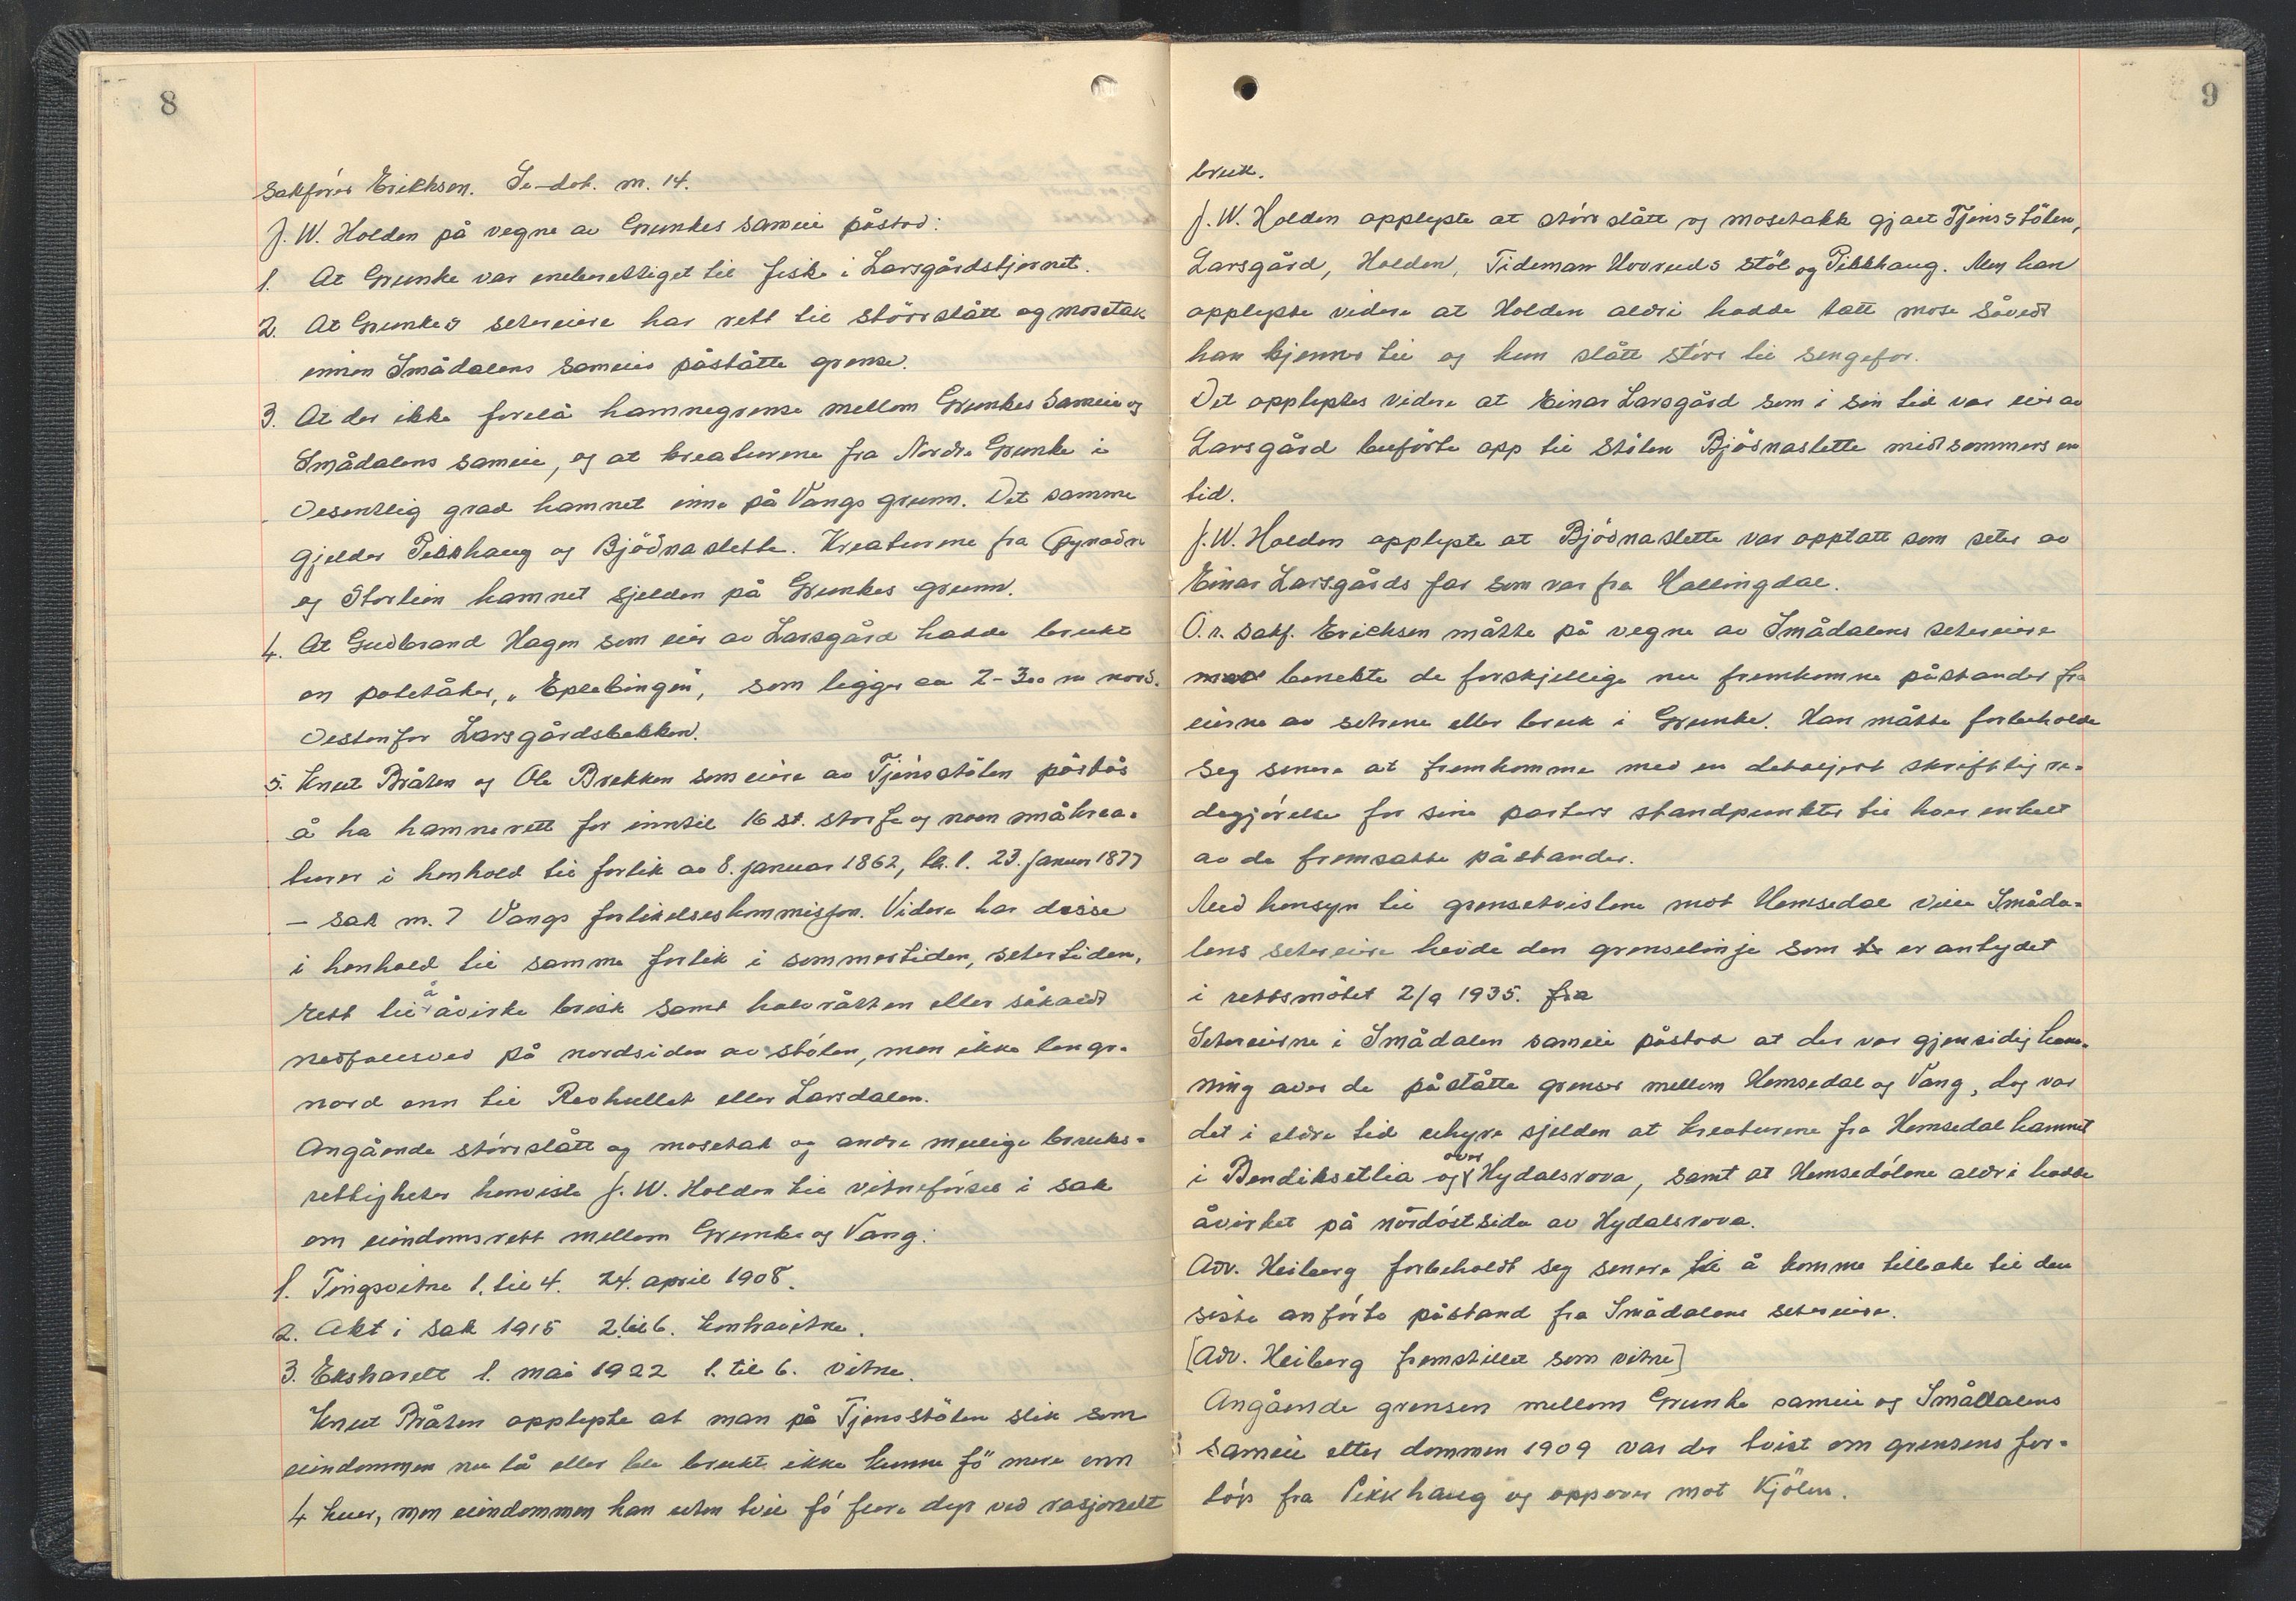 8
sakfører Erichsen. Se dok. nr. 14.
J. W. Holden på vegne av Grunkes sameie påstod:
1. At Grunke var eneberettiget til fiske i Larsgårdstjernet.
2. At Grunkes setereiere har rett til störrslått og mosetak
innen Smådalens sameies påståtte grense.
3. At der ikke forelå hamnegrense mellom Grunkes sameie og
Smådalens sameie, og at kreaturene fra Nordre Grunke i
vesentlig grad hamnet inne på Vangs grunn. Det samme
gjelder Pikkhaug og Bjödnaslette. Kreaturene fra
og Storlien hamnet sjelden på Grunkes grunn.
4. At Gudbrand Hagen som eier av Larsgård hadde brukt
en potetåker, "Eplebingen", som ligger ca 2-300 m nord-
vestenfor Larsgårdsbekken.
5. Knut Bråten og Ole Brekken som eiere av Tjernsstölen påstås
å ha hamnerett for inntil 16 st. storfe og noen småkrea-
turer i henhold til forlik av 8. januar 1862, tgl. 23. januar 1877
- sak nr. 7 Vangs forlikelseskommisjon. Videre har disse
i henhold til samme forlik i sommertiden, setertiden,
rett til å åvirke brisk samt halvråtten eller såkaldt
nedfallsved på nordsiden av stölen, men ikke lenger
nord enn til Revhullet eller Larsdalen.
Angående störrslått og mosetak og andre mulige bruks-
rettigheter henviste J. W. Holden til vitneförsel i sak
om eiendomsrett mellom Grunke og Vang:
1. Tingsvitne 1. til 4. 24. april 1908.
2. Akt i sak 1915 2. til 6. kontravitne.
3. Ekstrarett 1. mai 1922 1. til 6. vitne.
Knut Bråten opplyste at man på Tjernsstölen slik som
eiendommen nu lå eller ble brukt ikke kunne fö mere enn
4 kuer, men eiendommen kan uten tvil fö flere dyr ved rasjonelt
9
bruk.
J. W. Holden opplyste at störrslått og mosetakk gjaldt Tjernsstölen,
Larsgård, Holden, Tideman Hovruds stöl og Pikkhaug. Men han
opplyste videre at Holden aldri hadde tatt mose såvidt
han kjenner til og kun slått störr til sengefor.
Det opplystes videre at Einar Larsgård som i sin tid var eier av
Larsgård buförte opp til stölen Bjödnaslette midtsommers en
tid.
J. W. Holden opplyste at Bjödnaslette var opptatt som seter av
Einar Larsgårds far som var fra Hallingdal.
O.r. sakf. Erichsen måtte på vegne av Smådalens setereiere
benekte de forskjellige nu fremkomne påstander fra
eierne av setrene eller bruk i Grunke. Han måtte forbeholde
seg senere at fremkomme med en detaljert skriftlig re-
degjörelse for sine parters standpunkter til hver enkelt
av de fremsatte påstander.
Med hensyn til grensetvistene mot Hemsedal vil Småda-
lens setereiere hevde den grenselinje som er antydet
i rettsmötet 2/9 1935. fra
Setereierne i Smådalen sameie påstod at der var gjensidig ham-
ning over de påståtte grenser mellom Hemsedal og Vang, dog var
det i eldre tid uhyre sjelden at kreaturene fra Hemsedal hamnet
i Bendiksetlia og over Hydalsrova, samt at Hemsedölene aldri hadde
åvirket på nordöstsida av Hydalsrova.
Adv. Heiberg forbeholdt seg senere til å komme tilbake til den
siste anförte påstand fra Smådalens setereiere.
[Adv. Heiberg fremstillet som vitne]
Angående grensen mellom Grunke sameie og Smådalens
sameie etter dommen 1909 var der tvist om grensens for-
löp fra Pikkhaug og oppover mot Kjölen.